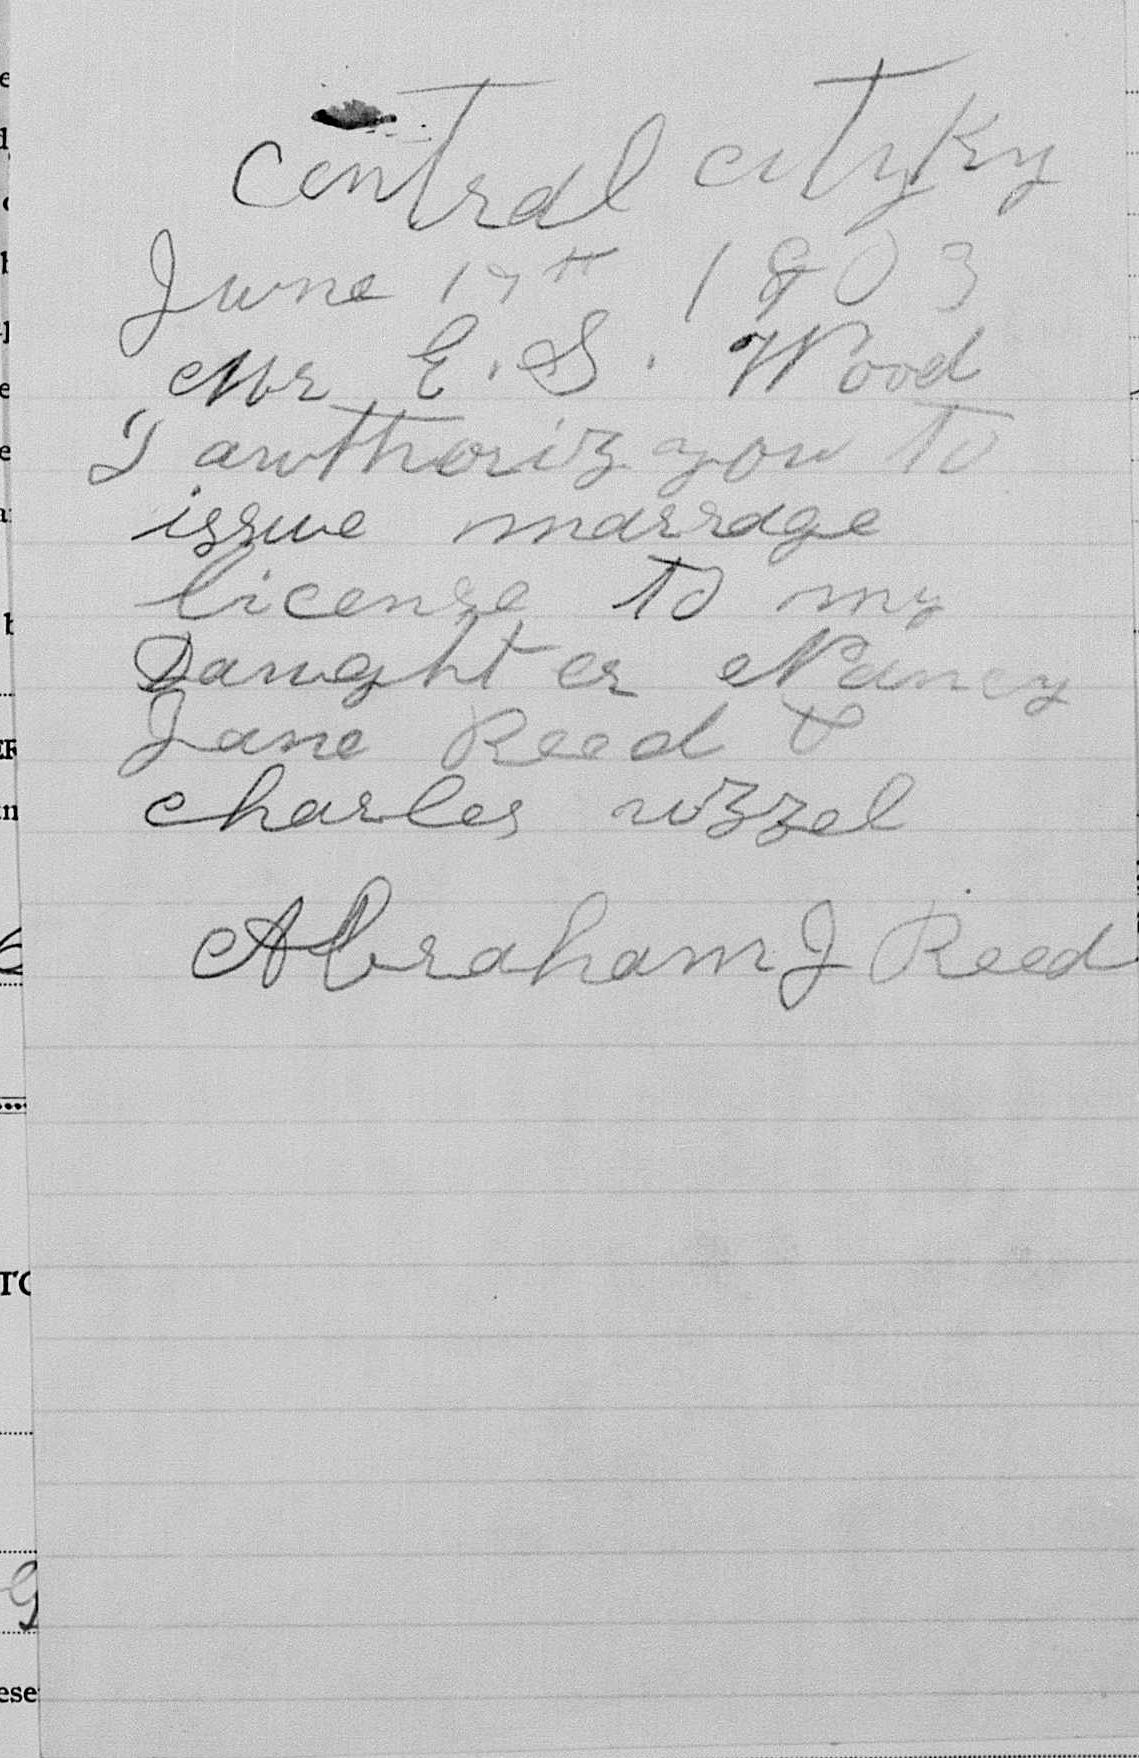 Central City Ky
June 17th 1903
Mr E. S. Wood
I authoriz you to
issue marrage
license to my
Daughter Nancy
Jane Reed &
Charles uzzel
Abraham J Reed